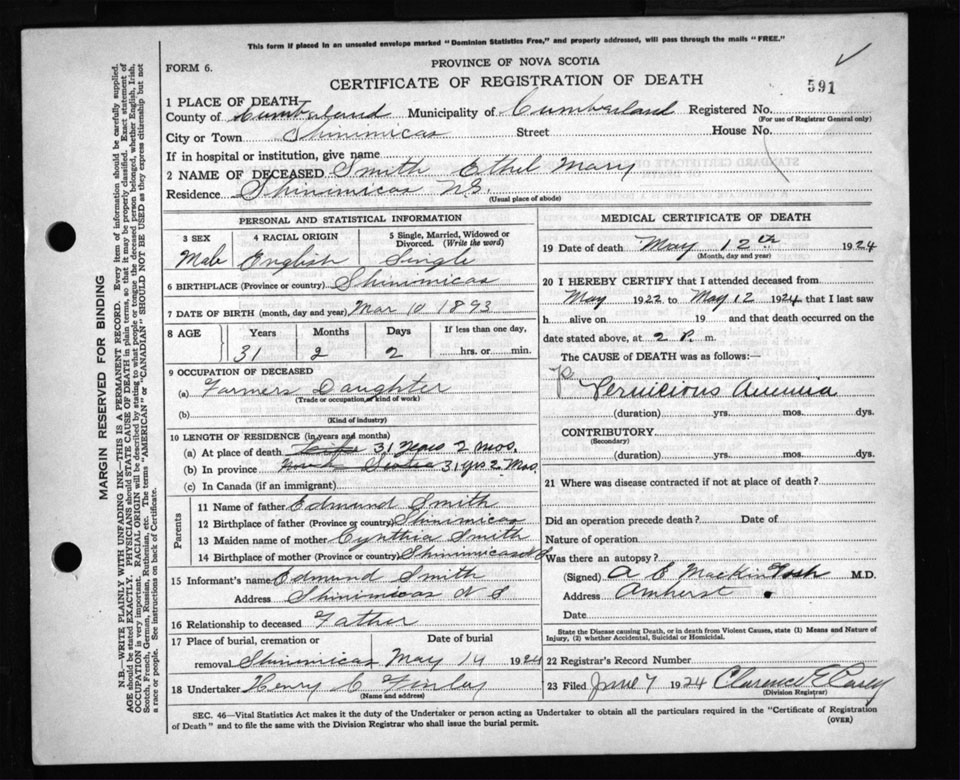 This form if placed in an unsealed envelope marked "Dominion Statistics Free," and properly addressed, will pass through the mails "FREE."
FORM 6.
PROVINCE OF NOVA SCOTIA
CERTIFICATE OF REGISTRATION OF DEATH
591
1 PLACE OF DEATH
County of Cumberland Municipality of Cumberland Registered No.
(For use of Registrar General only)
City or Town Shinimicas Street House No.
If in hospital or institution, give name
2 NAME OF DECEASED Smith Ethel Mary
Residence Shinimicas N.S.
(Usual place of abode)
PERSONAL AND STATISTICAL INFORMATION
3 SEX 4 RACIAL ORIGIN 5 Single, Married, Widowed or Divorced. (Write the word)
Male English Single
6 BIRTHPLACE (Province or country) Shinimicas
7 DATE OF BIRTH (month, day and year) Mar 10 1893
8 AGE Years Months Days If less than one day,
31 2 2 hrs. or min.
9 OCCUPATION OF DECEASED
(a) Farmers Daughter
(Trade or occupation, kind of work)
(b)
(Kind of industry)
10 LENGTH OF RESIDENCE (in years and months)
(a) At place of death Life 31 Years 2 Mos.
(b) In province Nova Scotia 31 yrs 2. Mos.
(c) In Canada (if an immigrant)
Parents
11 Name of father Edmund Smith
12 Birthplace of father (Province or country) Shinimicas
13 Maiden name of mother Cynthia Smith
14 Birthplace of mother (Province or country) Shinimicas N S
15 Informant's name Edmund Smith
Address Shinimicas N S
16 Relationship to deceased Father
17 Place of burial, cremation or Date of burial
removal Shinimicas May 14 1924
18 Undertaker Henry C Finlay
(Name and address)
MEDICAL CERTIFICATE OF DEATH
19 Date of death May 12th 1924
(Month, day and year)
20 I HEREBY CERTIFY that I attended deceased from
May 1922 to May 12 1924 that I last saw
h alive on 19 and that death occurred on the
date stated above, at 2 P. m.
The CAUSE of DEATH was as follows:
Pernicious Anemia
(duration) yrs. mos. dys.
CONTRIBUTORY
(Secondary)
(duration) yrs. mos. dys.
21 Where was disease contracted if not at place of death?
Did an operation precede death? Date of
Nature of operation
Was there an autopsy?
(Signed) A E MackinTosh M.D.
Address Amherst
Date
State the Disease causing Death, or in death from Violent Causes, state (1) Means and Nature of
Injury, (2) whether Accidental, Suicidal or Homicidal.
22 Registrar's Record Number
23 Filed June 7 1924 Clarence E
(Division Registrar)
SEC. 46—Vital Statistics Act makes it the duty of the Undertaker or person acting as Undertaker to obtain all the particulars required in the "Certificate of Registration
of Death" and to file the same with the Division Registrar who shall issue the burial permit.
(OVER)
MARGIN RESERVED FOR BINDING
N.B.—WRITE PLAINLY WITH UNFADING INK—THIS IS A PERMANENT RECORD. Every item of information should be carefully supplied.
AGE should be stated EXACTLY. PHYSICIANS should STATE CAUSE OF DEATH in plain terms, so that it may be properly classified. Exact statement of
OCCUPATION is very important. RACIAL ORIGIN will be described by stating to what people or tongue the deceased person belonged, whether English, Irish,
Scotch, French, German, Russian, Ruthenian, etc. The terms "AMERICAN" or "CANADIAN" SHOULD NOT BE USED as they express citizenship but not
a race or people. See instructions on back of Certificate.